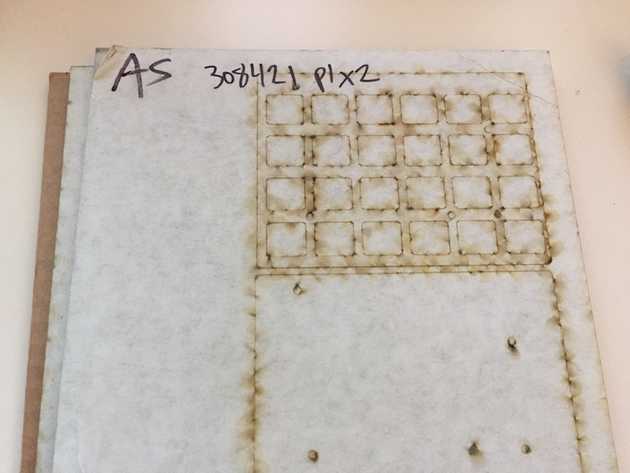 AS 308421 p1x2